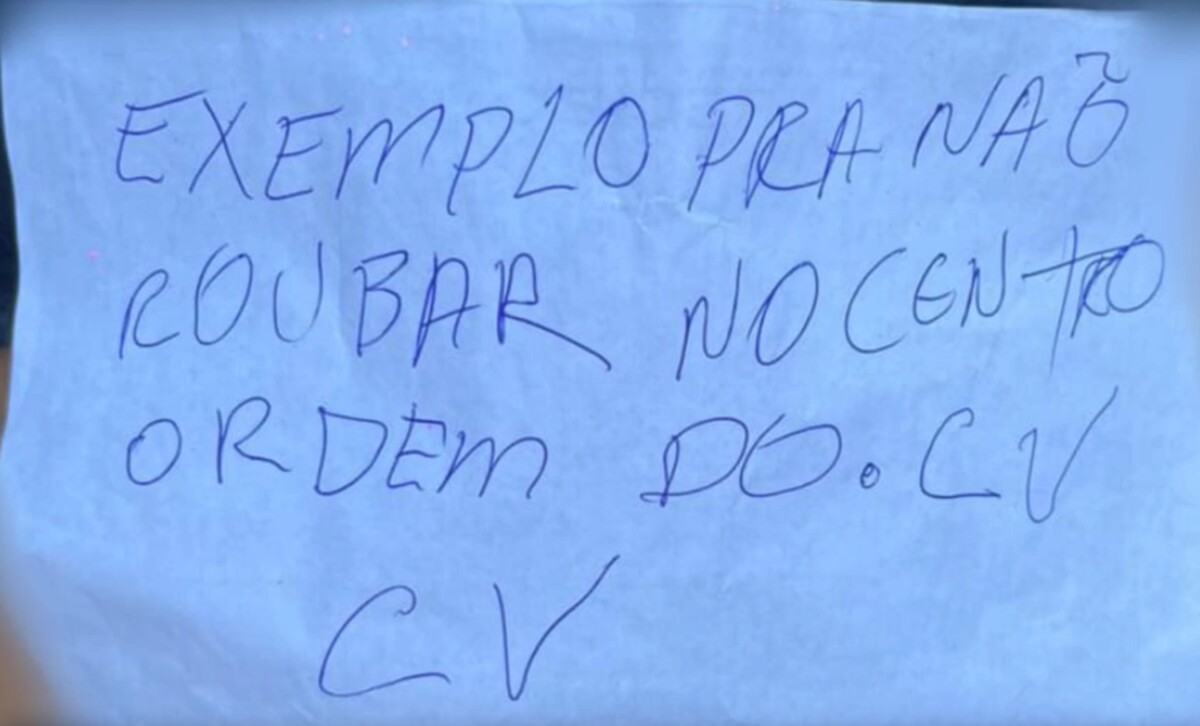 EXEMPLO PRA NAÕ
ROUBAR NO CENTRO
ORDEM DO. CV
CV